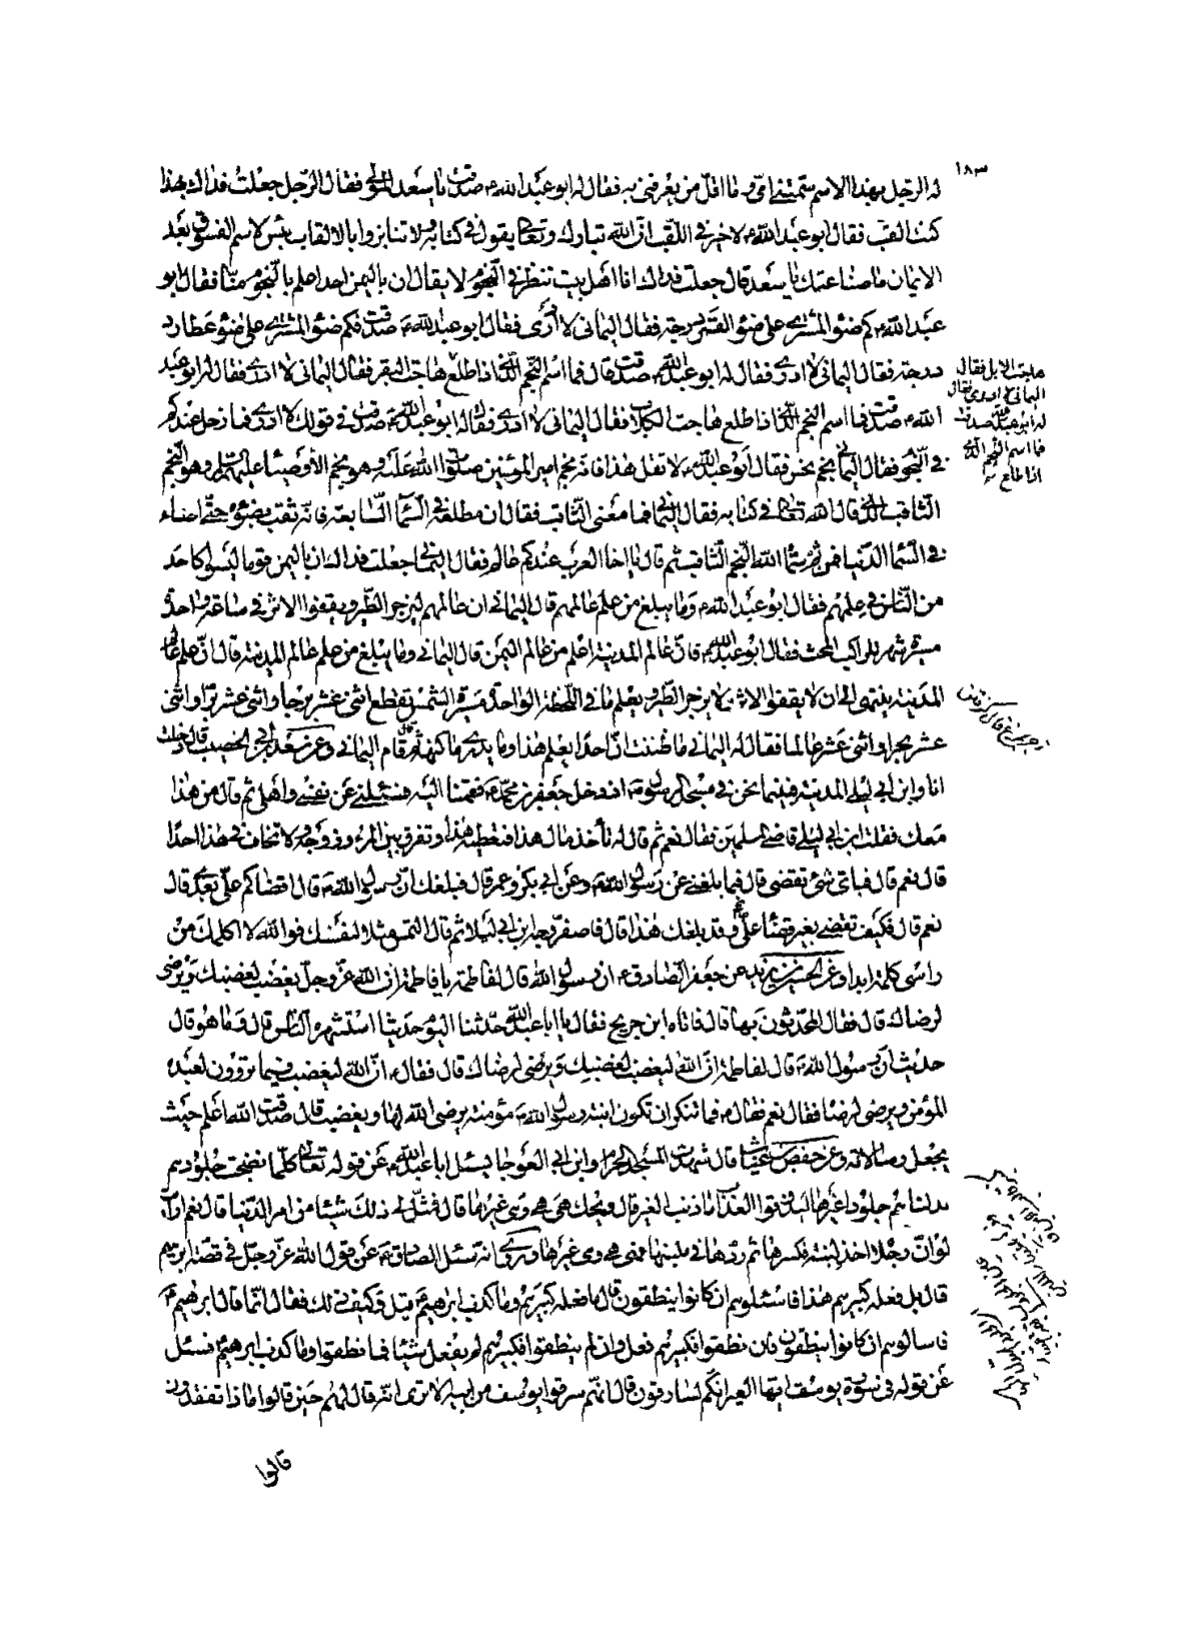 ١٨٣
له الرجل بهذا الاسم سمتني امي وما اقل من يعرفني به فقال له ابو عبد الله ع صدقت يا سعد المولى فقال الرجل جعلت فداك بهذا
كنت القب فقال ابو عبد الله ع لا خير في اللقب ان الله تبارك وتعالى يقول في كتابه ولا تنابزوا بالالقاب بئس الاسم الفسوق بعد
الايمان ما صناعتك يا سعد قال جعلت فداك انا اهل بيت ننظر في النجوم لا يقال ان باليمن احدا اعلم بالنجوم منا فقال ابو
عبد الله ع كم ضوء المشتري على ضوء القمر درجة فقال اليماني لا ادري فقال ابو عبد الله ع صدقت فكم ضوء المشتري على ضوء عطارد
درجة فقال اليماني لا ادري فقال له ابو عبد الله ع صدقت قال فما اسم النجم الذي اذا طلع هاجت البقر فقال اليماني لا ادري فقال له ابو عبد
الله ع صدقت فما اسم النجم الذي اذا طلع هاجت الكلاب فقال اليماني لا ادري فقال له ابو عبد الله ع صدقت في قولك لا ادري فما زحل عندكم
في النجوم فقال اليماني نجم نحس فقال ابو عبد الله ع لا تقل هذا فانه نجم امير المؤمنين صلوات الله عليه وهو نجم الاوصياء عليهم السلم وهو النجم
الثاقب الذي قال الله تعالى في كتابه فقال اليماني فما معنى الثاقب فقال ان مطلعه في السماء السابعة فانه ثقب بضوئه حتى اضاء
في السماء الدنيا فمن ثم سماه الله النجم الثاقب ثم قال يا اخا العرب عندكم عالم فقال اليماني جعلت فداك ان باليمن قوما ليسوا كاحد
من الناس في علمهم فقال ابو عبد الله ع وما يبلغ من علم عالمهم قال اليماني ان عالمهم ليزجر الطير ويقفوا الاثر في ساعة واحدة
مسيرة شهر للراكب المحث فقال ابو عبد الله ع فان عالم المدينة اعلم من عالم اليمن قال اليماني وما يبلغ من علم عالم المدينة قال ان علم عالم
المدينة ينتهي الى ان لا يقفوا الاثر ولا يزجر الطير ويعلم ما في اللحظة الواحدة مسيرة الشمس تقطع اثنى عشر برجا واثنى عشر برا واثنى
عشر بحرا واثنى عشر عالما فقال له اليماني ما ظننت ان احدا يعلم هذا وما يدري ما كنهه ثم قام اليماني وعن سعد بن ابي الخصيب قال دخلت
انا وابن ابي ليلى المدينة فبينما نحن في مسجد الرسول ص اذ دخل جعفر بن محمد ع فقمنا اليه فسئلني عن نفسي واهلي ثم قال من هذا
معك فقلت ابن ابي ليلى قاضي المسلمين فقال نعم ثم قال له تأخذ مال هذا فتعطيه هذا وتفرق بين المرء وزوجه ولا تخاف في هذا احدا
قال نعم قال فباي شئ تقضي قال فيما بلغني عن رسول الله ص وعن ابي بكر وعمر قال فبلغك ان رسول الله ص قال اقضاكم علي بعدي قال
نعم قال فكيف تقضي بغير قضاء علي ع وقد بلغك هذا قال فاصفر وجه ابن ابي ليلى ثم قال التمس مثلا لنفسك فوالله لا اكلمك من
راسي كلمة ابدا وعن الحسين بن زيد عن جعفر الصادق ع ان رسول الله قال لفاطمة يا فاطمة ان الله عز وجل يغضب لغضبك ويرضى
لرضاك قال فقال المحدثون بها قال فاتاه ابن جريح فقال يا ابا عبد الله حدثنا اليوم حديثا استشهره الناس قال وما هو قال
حديث ان رسول الله ص قال لفاطمة ان الله ليغضب لغضبك ويرضى لرضاك قال فقال ع ان الله ليغضب فيما تروون لعبده
المؤمن ويرضى لرضاه فقال نعم فقال ع فما تنكر ان تكون ابنة رسول الله ص مؤمنة يرضى الله لها ويغضب قال صدقت الله اعلم حيث
يجعل رسالاته وعن حفص بن غياث قال شهدت المسجد الحرام وابن ابي العوجا يسئل ابا عبد الله ع عن قوله تعالى كلما نضجت جلودهم
بدلناهم جلودا غيرها ليذوقوا العذاب ما ذنب الغير قال ويحك هي هي وهي غيرها قال فمثل لي ذلك شيئا من امر الدنيا قال نعم ارأيت
لو ان رجلا اخذ لبنة فكسرها ثم ردها في ملبنها فهي هي وهي غيرها وروي انه سئل الصادق ع عن قول الله عز وجل في قصة ابرهيم
قال بل فعله كبيرهم هذا فاسئلوهم ان كانوا ينطقون قال ما فعله كبيرهم وما كذب ابرهيم قيل وكيف ذلك فقال انما قال ابرهيم ع
فاسالوهم ان كانوا ينطقون فان نطقوا فكبيرهم فعل وان لم ينطقوا فكبيرهم لم يفعل شيئا فما نطقوا وما كذب ابرهيم فسئل
عن قوله في سورة يوسف ايتها العير انكم لسارقون قال انهم سرقوا يوسف من ابيه الا ترى انه قال لهم حين قالوا ماذا تفقدون
قالوا
هاجت الابل فقال
اليماني لا ادري فقال
له ابو عبد الله صدقت
فما اسم النجم الذي
اذا طلع